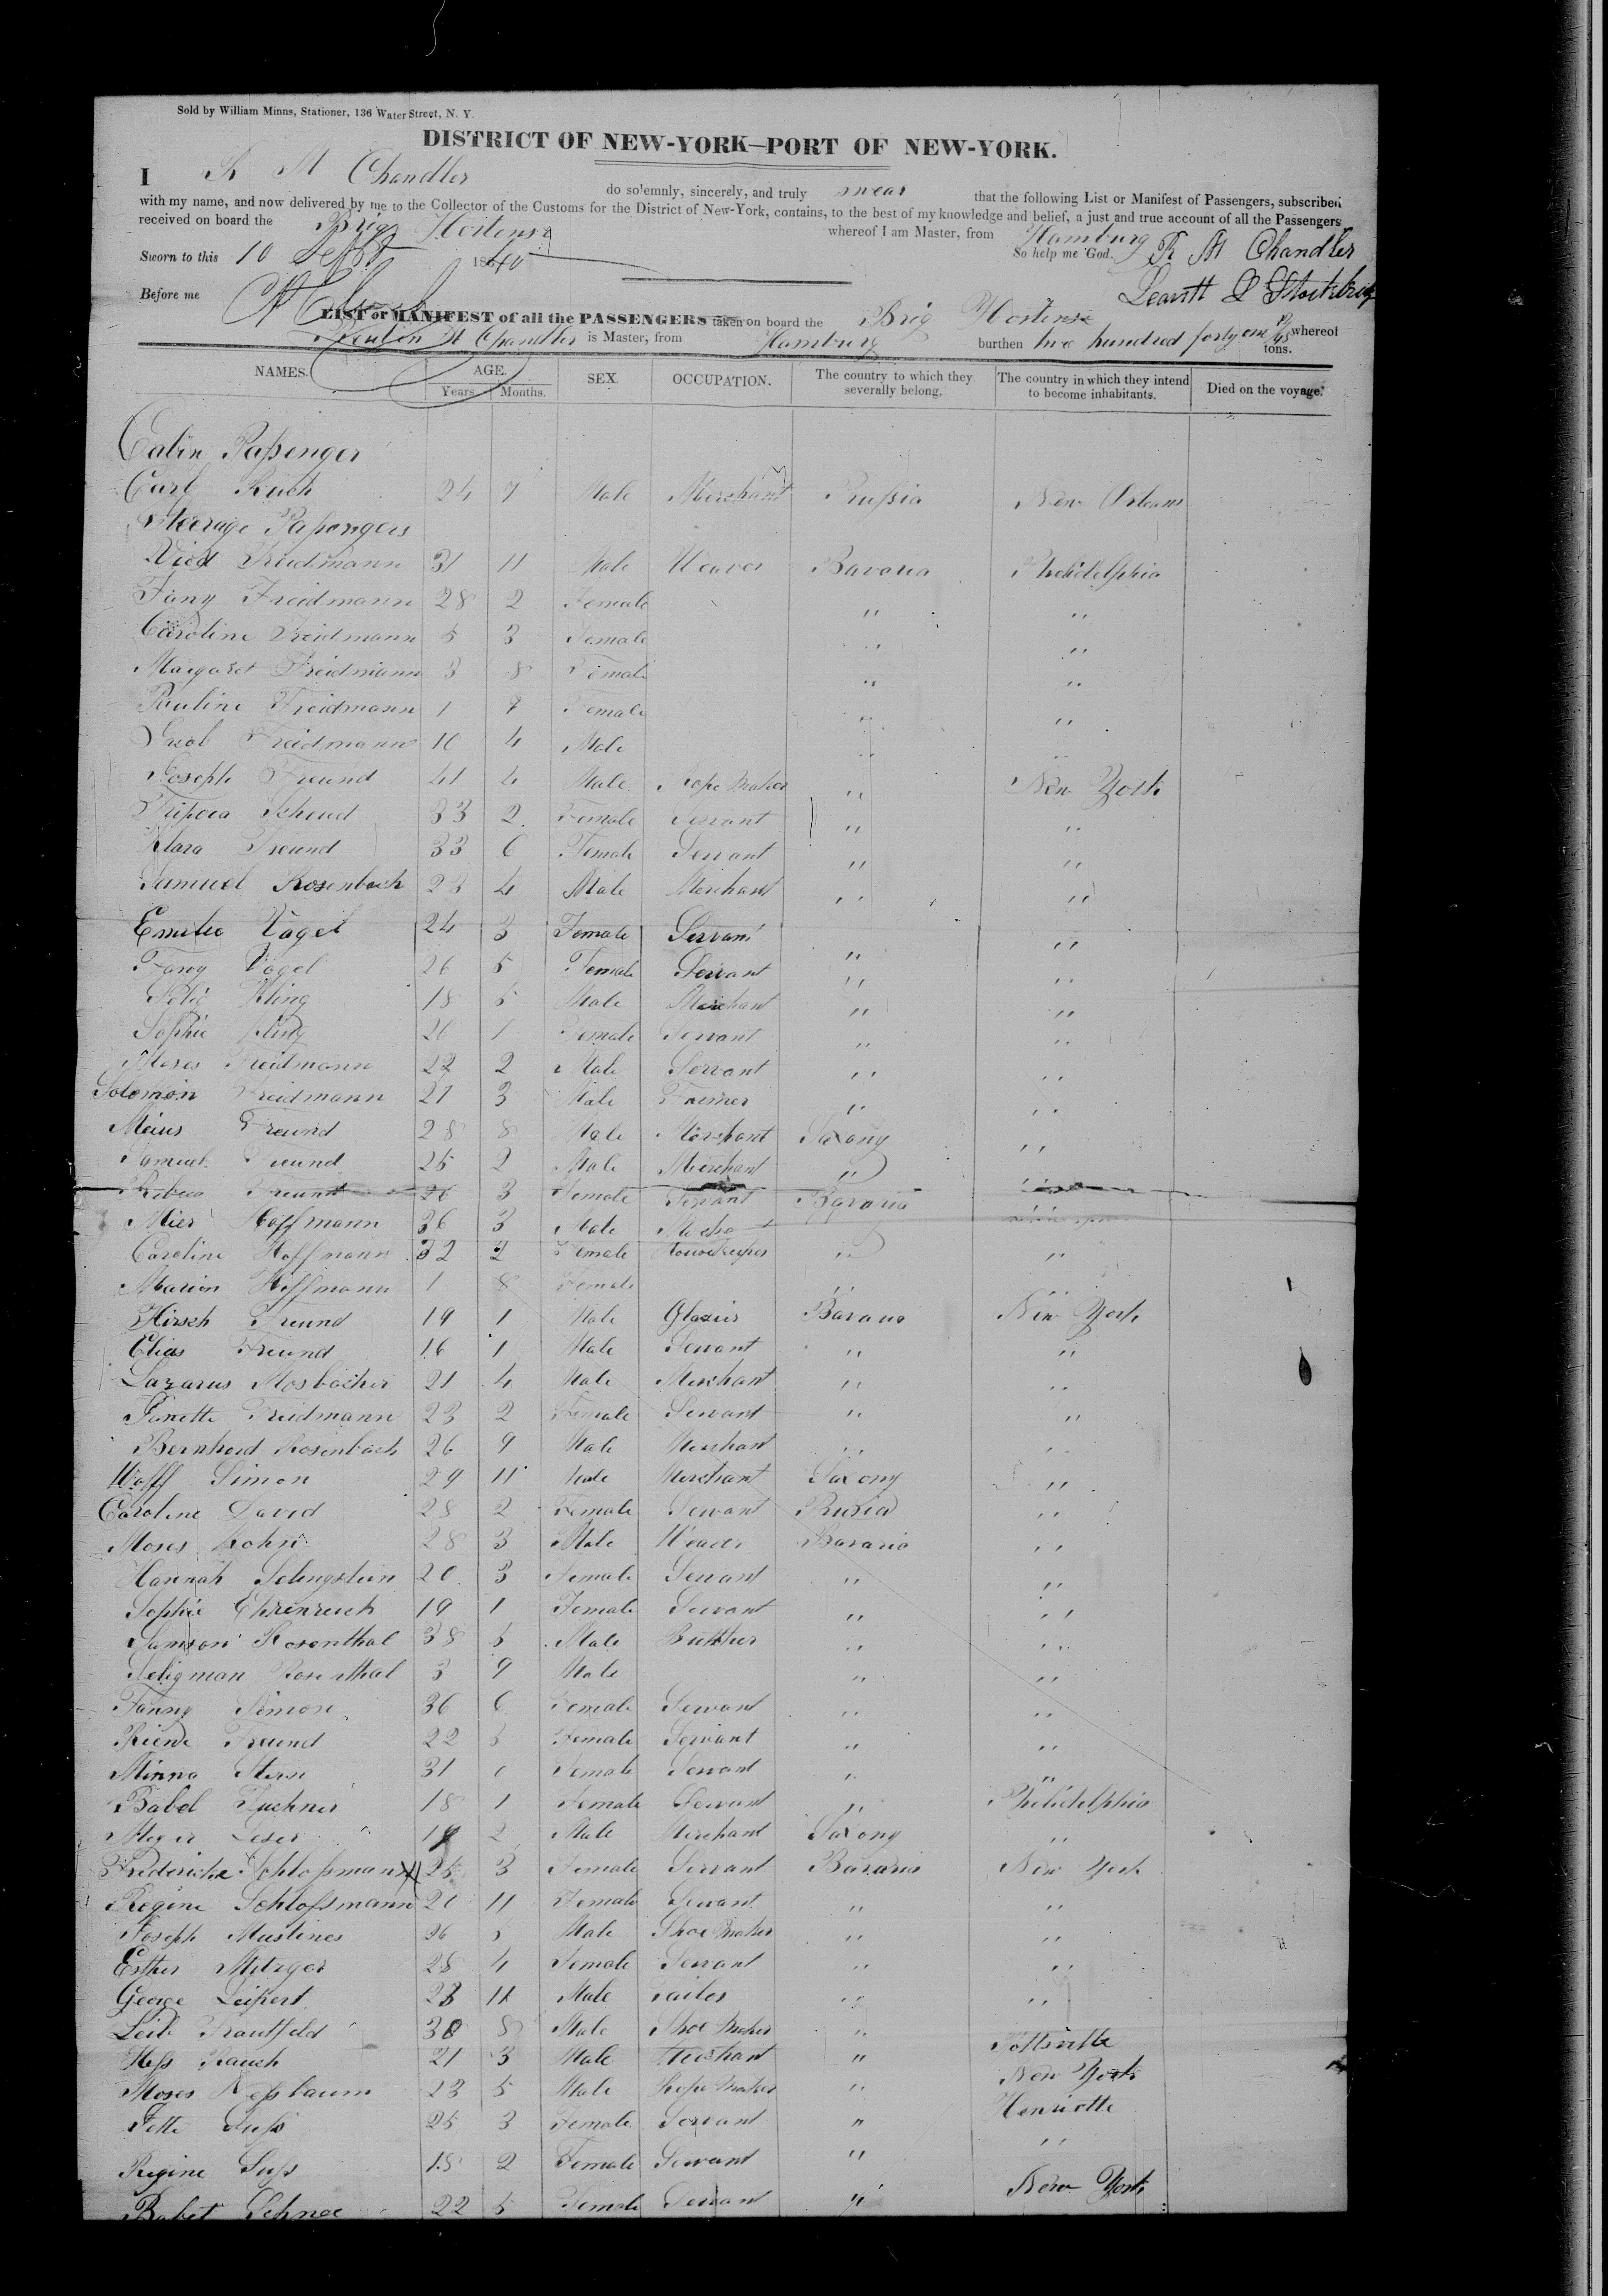 Sold by William Minns, Stationer, 136 Water Street, N. Y.
DISTRICT OF NEW-YORK—PORT OF NEW-YORK.
I R M Chandler do solemnly, sincerely, and truly swear that the following List or Manifest of Passengers, subscribed
with my name, and now delivered by me to the Collector of the Customs for the District of New-York, contains, to the best of my knowledge and belief, a just and true account of all the Passengers
received on board the Brig Hortense whereof I am Master, from Hamburg
Sworn to this 10 Sept 1840 So help me God. R M Chandler
Before me
LIST or MANIFEST of all the PASSENGERS taken on board the Brig Hortense whereof
Chandler is Master, from Hamburg burthen two hundred forty one tons.
NAMES. AGE. SEX. OCCUPATION. The country to which they severally belong. The country in which they intend to become inhabitants. Died on the voyage.
Years Months.
Cabin Paßenger
Carl Ruch 24 7 Male Merchant Prußia New Orleans
Steerage Paßengers
Freidmann 31 11 Male Weaver Bavaria Philidelphia
Fany Freidmann 28 2 Female " "
Caroline Freidmann 5 3 Female " "
Margaret Freidmann 3 8 Female " "
Pauline Freidmann 1 7 Female " "
Jacob Freidmann 10 4 Male " "
Joseph Freund 41 4 Male Rope Maker " New York
33 2 Female Servant " "
Klara Freund 33 6 Female Servant " "
Samuel Rosenbach 23 4 Male Merchant " "
Emilie Vogel 24 3 Female Servant " "
Fany Vogel 26 5 Female Servant " "
Kling 18 5 Male Merchant " "
Sophie Kling 20 1 Female Servant " "
Moses Freidmann 22 2 Male Servant " "
Solomon Freidmann 21 3 Male Farmer " "
Freund 28 8 Male Merchant Saxony "
Samuel Freund 25 2 Male Merchant " "
Freund 26 3 Female Servant Bavaria "
Mier Hoffmann 36 3 Male
Caroline Hoffmann 32 2 Female Housekeeper " "
Marion Hoffmann 1 8 Female " "
Hirsch Freund 19 1 Male Glazier Bavaria New York
Elias Freund 16 1 Male Servant " "
Lazarus Mosbacher 21 4 Male Merchant " "
Janette Freidmann 23 2 Female Servant " "
Bernhard Rosenbach 26 9 Male Merchant " "
Wolff Simon 29 11 Male Merchant Saxony "
Caroline David 28 2 Female Servant "
Moses Kohn 28 3 Male Weaver Bavaria "
Hannah 20 3 Female Servant " "
Sophie Ehrenreich 19 1 Female Servant " "
Samson Rosenthal 38 5 Male Butcher " "
Seligman Rosenthal 3 9 Male " "
Fanny Simon 36 6 Female Servant " "
Freund 22 5 Female Servant " "
Minna Stern 31 Female Servant " "
Babet 18 1 Female Servant " Philidelphia
Meyer Leser 2 Male Merchant Saxony "
Fredericke Schloßmann 25 3 Female Servant Bavaria New York
Regine Schloßmann 20 11 Female Servant " "
Joseph 26 5 Male Shoe Maker " "
Esther Metzger 28 4 Female Servant " "
George Leipert 11 Male Tailor " "
Leib 8 Male Shoe Maker " Pottsville
Heß Rauch 21 3 Male Merchant " New York
Moses Neßbaum 23 5 Male Rope Maker " Henriette
Jette Suß 25 3 Female Servant " "
Regine Suß 18 2 Female Servant " New York
Babet Schnee 22 5 Female Servant "